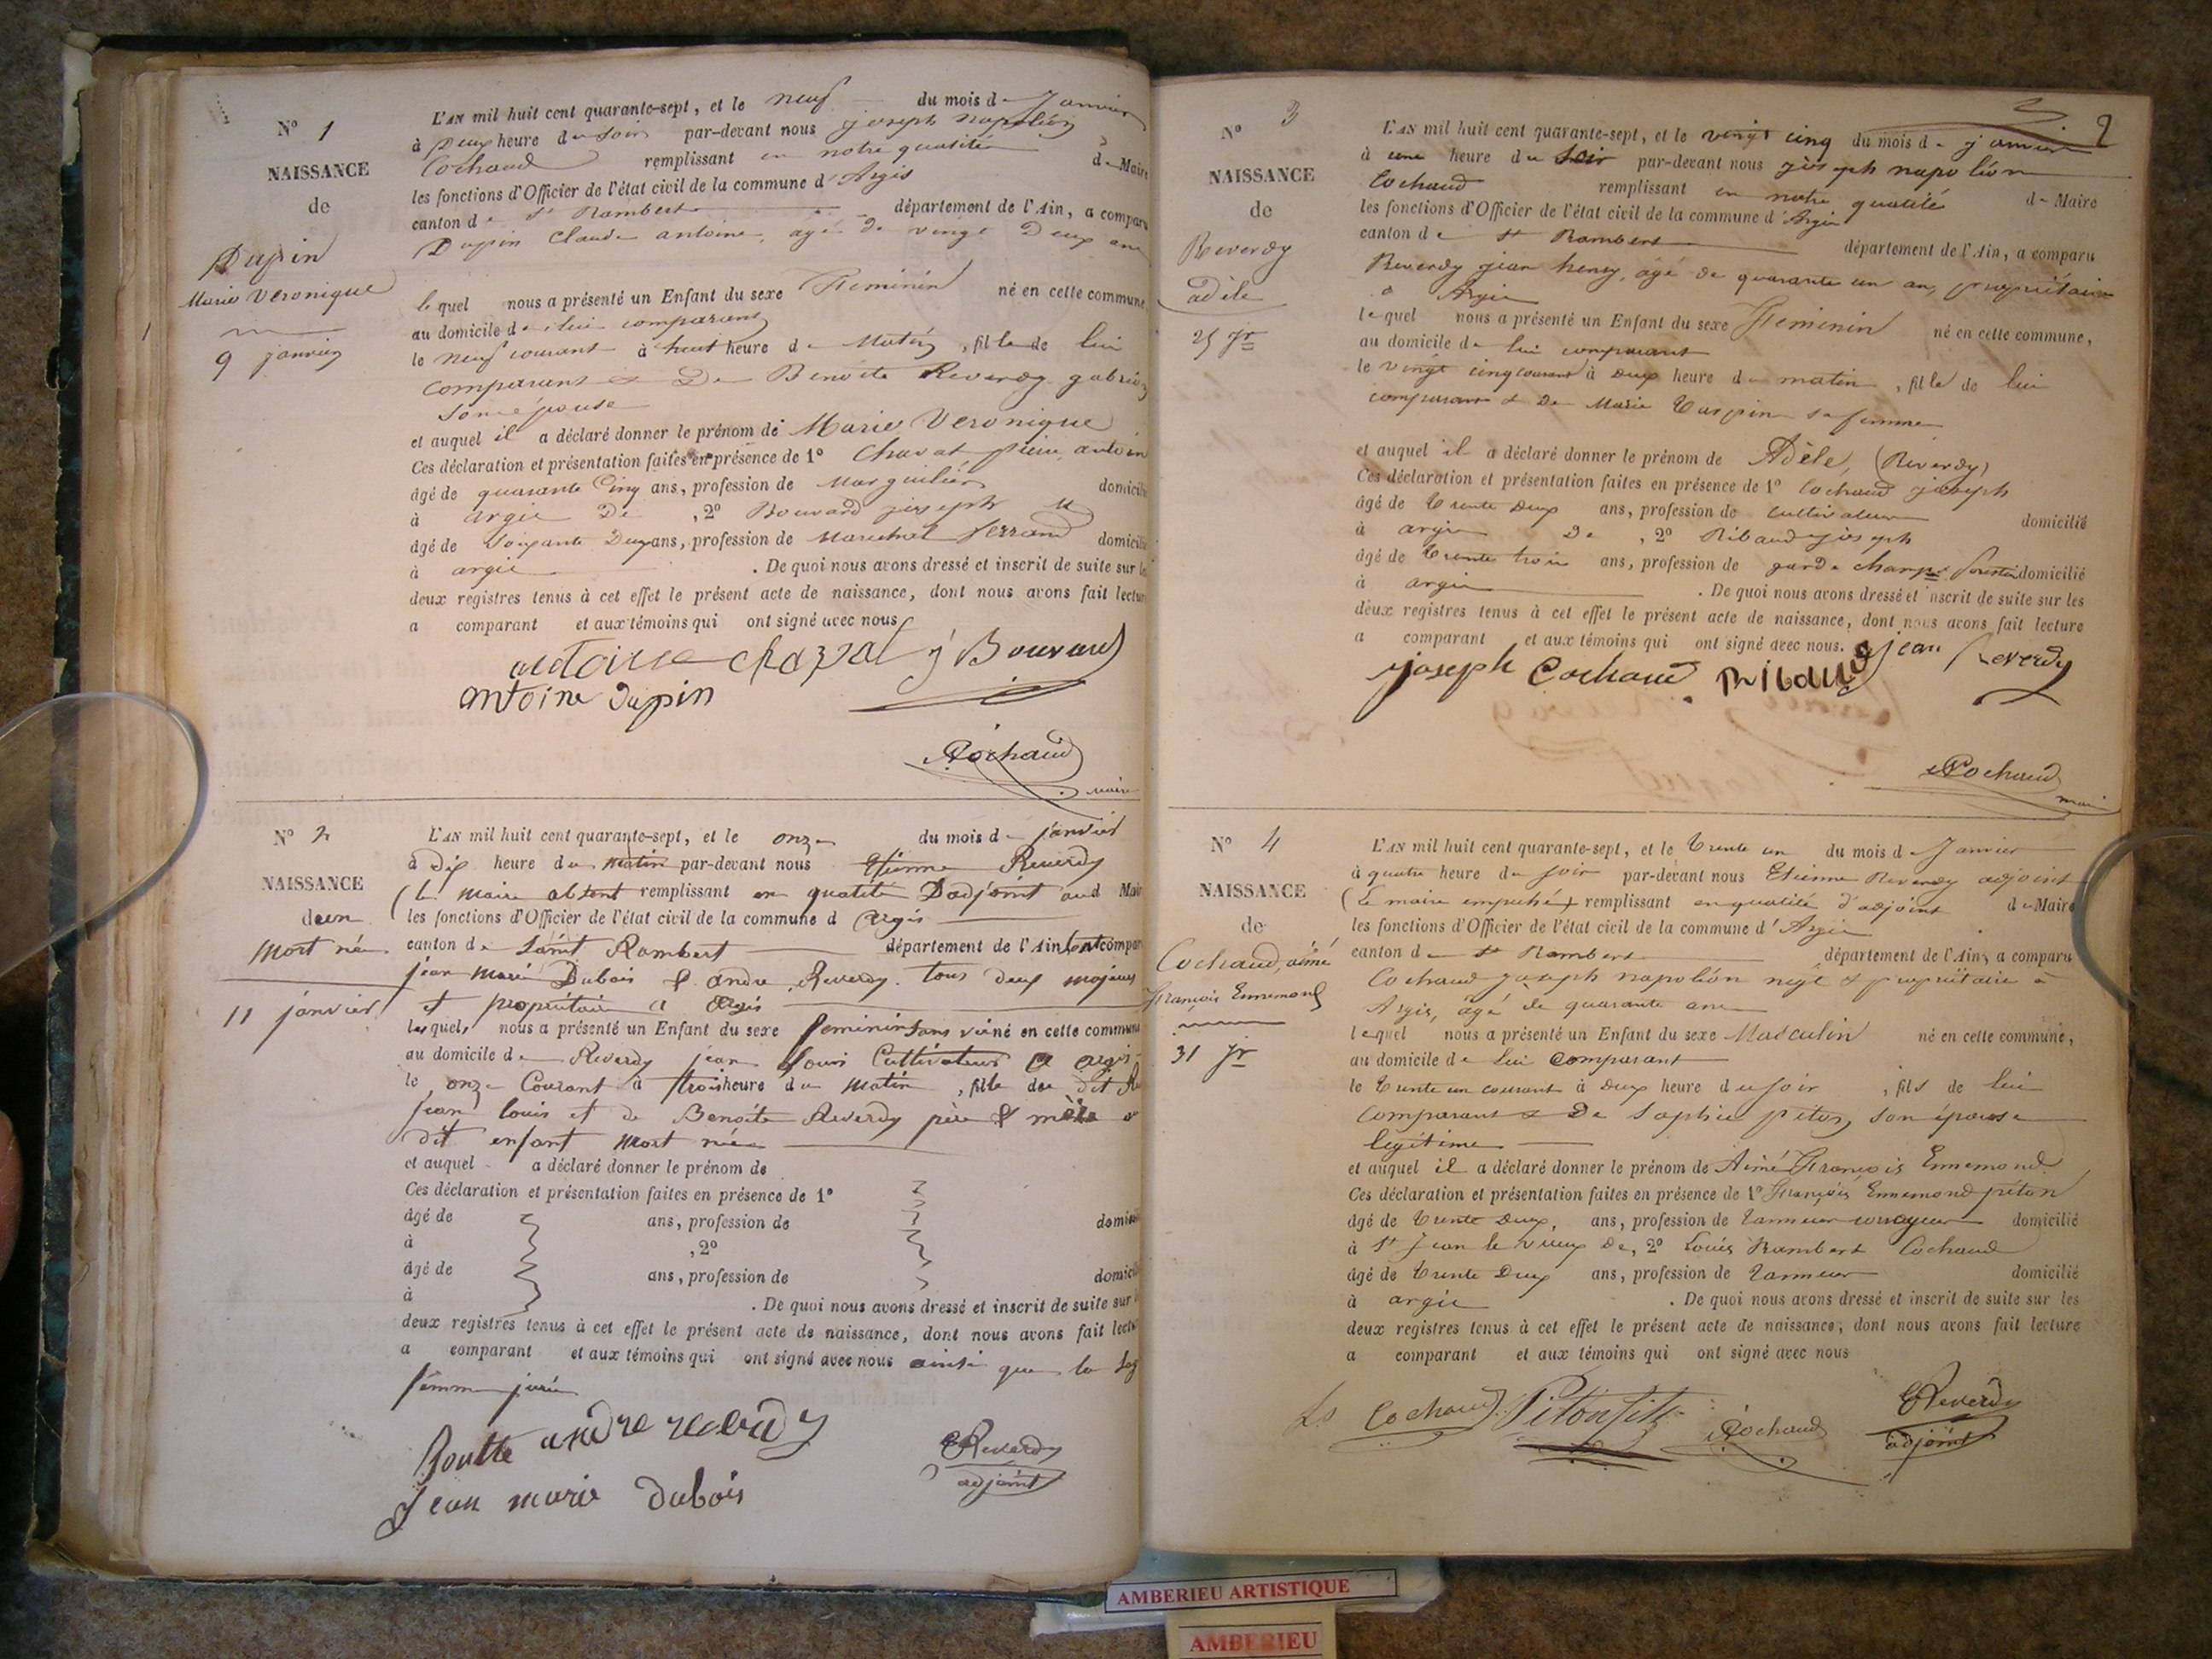 N° 1
NAISSANCE
de
Dupin
Marie Veronique
9 janvier
L'AN mil huit cent quarante-sept, et le neuf du mois de Janvier
à Deux heure du Soir par-devant nous joseph napoléon
Cochaud remplissant en notre qualité de Maire
les fonctions d'Officier de l'état civil de la commune d'Argis
canton de St Rambert département de l'Ain, a comparu
Dupin Claude antoine, agé de vingt Deux ans
lequel nous a présenté un Enfant du sexe Feminin né en cette commune
au domicile de lui comparant
le neuf courant à huit heure du Matin, fille de lui
comparant & De Benoite Reverdy gabriez
son épouse
et auquel il a déclaré donner le prénom de Marie Veronique
Ces déclaration et présentation faites en présence de 1° Chavat pierre antoin
âgé de quarante Cinq ans, profession de Marguilier domicilié
à argis De , 2° Bouvard joseph
âgé de Soixante Deux ans, profession de Marechal ferrand domicilié
à argis . De quoi nous avons dressé et inscrit de suite sur les
deux registres tenus à cet effet le présent acte de naissance, dont nous avons fait lecture
a comparant et aux témoins qui ont signé avec nous
antoine chazal j Bouvard
antoine dupin
Cochaud
maire
N° 2
NAISSANCE
de un
Mort née
11 janvier
L'AN mil huit cent quarante-sept, et le onze du mois de janvier
à dix heure du matin par-devant nous Etienne Reverdy
(le maire absent remplissant en qualité D'adjoint aud Maire
les fonctions d'Officier de l'état civil de la commune d argis
canton de Saint Rambert département de l'Ain, ont compar
jean marie Dubois & andre Reverdy tous deux majeurs
et propriétaire a argis
lesquels nous a présenté un Enfant du sexe feminin sans vie né en cette commune
au domicile de Reverdy jean Louis Cultivateur a argis
le onze Courant à trois heure du matin, fille du dit
jean louis et de Benoite Reverdy père & mère
dit enfant mort née
et auquel a déclaré donner le prénom de
Ces déclaration et présentation faites en présence de 1°
âgé de ans, profession de domicilié
à , 2°
âgé de ans, profession de domicilié
à . De quoi nous avons dressé et inscrit de suite sur
deux registres tenus à cet effet le présent acte de naissance, dont nous avons fait lecture
a comparant et aux témoins qui ont signé avec nous ainsi que la sage
femme jurée
Boutte andre reverdy
Jean marie dubois
EReverdy
adjoint
2
N° 3
NAISSANCE
de
Reverdy
adèle
25 jr
L'AN mil huit cent quarante-sept, et le vingt cinq du mois de janvier
à une heure du Soir par-devant nous joseph napoléon
Cochaud remplissant en notre qualité de Maire
les fonctions d'Officier de l'état civil de la commune d'Argis
canton de St Rambert département de l'Ain, a comparu
Reverdy jean henry, agé de quarante un an, propriétaire
a Argis
lequel nous a présenté un Enfant du sexe Feminin né en cette commune,
au domicile de lui comparant
le vingt cinq courant à Deux heure du matin, fille de lui
comparant & De Marie Varpin sa femme
et auquel il a déclaré donner le prénom de Adèle, (Reverdy)
Ces déclaration et présentation faites en présence de 1° Cochaud joseph
âgé de trente Deux ans, profession de cultivateur domicilié
à argis De , 2° Ribaud joseph
âgé de trente trois ans, profession de garde champ forestier domicilié
à argis . De quoi nous avons dressé et inscrit de suite sur les
deux registres tenus à cet effet le présent acte de naissance, dont nous avons fait lecture
a comparant et aux témoins qui ont signé avec nous. jean Reverdy
joseph Cochaud Ribaud
Cochaud
maire
N° 4
NAISSANCE
de
Cochaud, aimé
François Ennemond
31 jr
L'AN mil huit cent quarante-sept, et le trente un du mois de Janvier
à quatre heure du soir par-devant nous Etienne Reverdy adjoint
(le maire empeché) remplissant en qualité d'adjoint de Maire
les fonctions d'Officier de l'état civil de la commune d'Argis
canton de St Rambert département de l'Ain, a comparu
Cochaud joseph napoléon negt & propriétaire à
Argis, âgé de quarante ans
lequel nous a présenté un Enfant du sexe Masculin né en cette commune,
au domicile de Lui Comparant
le trente un courant à deux heure du soir, fils de lui
Comparant & De Sophie piton, son épouse
legitime
et auquel il a déclaré donner le prénom de Aimé François Ennemond
Ces déclaration et présentation faites en présence de 1° François Ennemond piton
âgé de trente Deux, ans, profession de tanneur corroyeur domicilié
à St Jean le vieux De, 2° Louis Rambert Cochaud
âgé de trente Deux ans, profession de tanneur domicilié
à argis . De quoi nous avons dressé et inscrit de suite sur les
deux registres tenus à cet effet le présent acte de naissance, dont nous avons fait lecture
a comparant et aux témoins qui ont signé avec nous
Ls Cochaud Piton fils Cochaud EReverdy
adjoint
AMBERIEU ARTISTIQUE
AMBERIEU